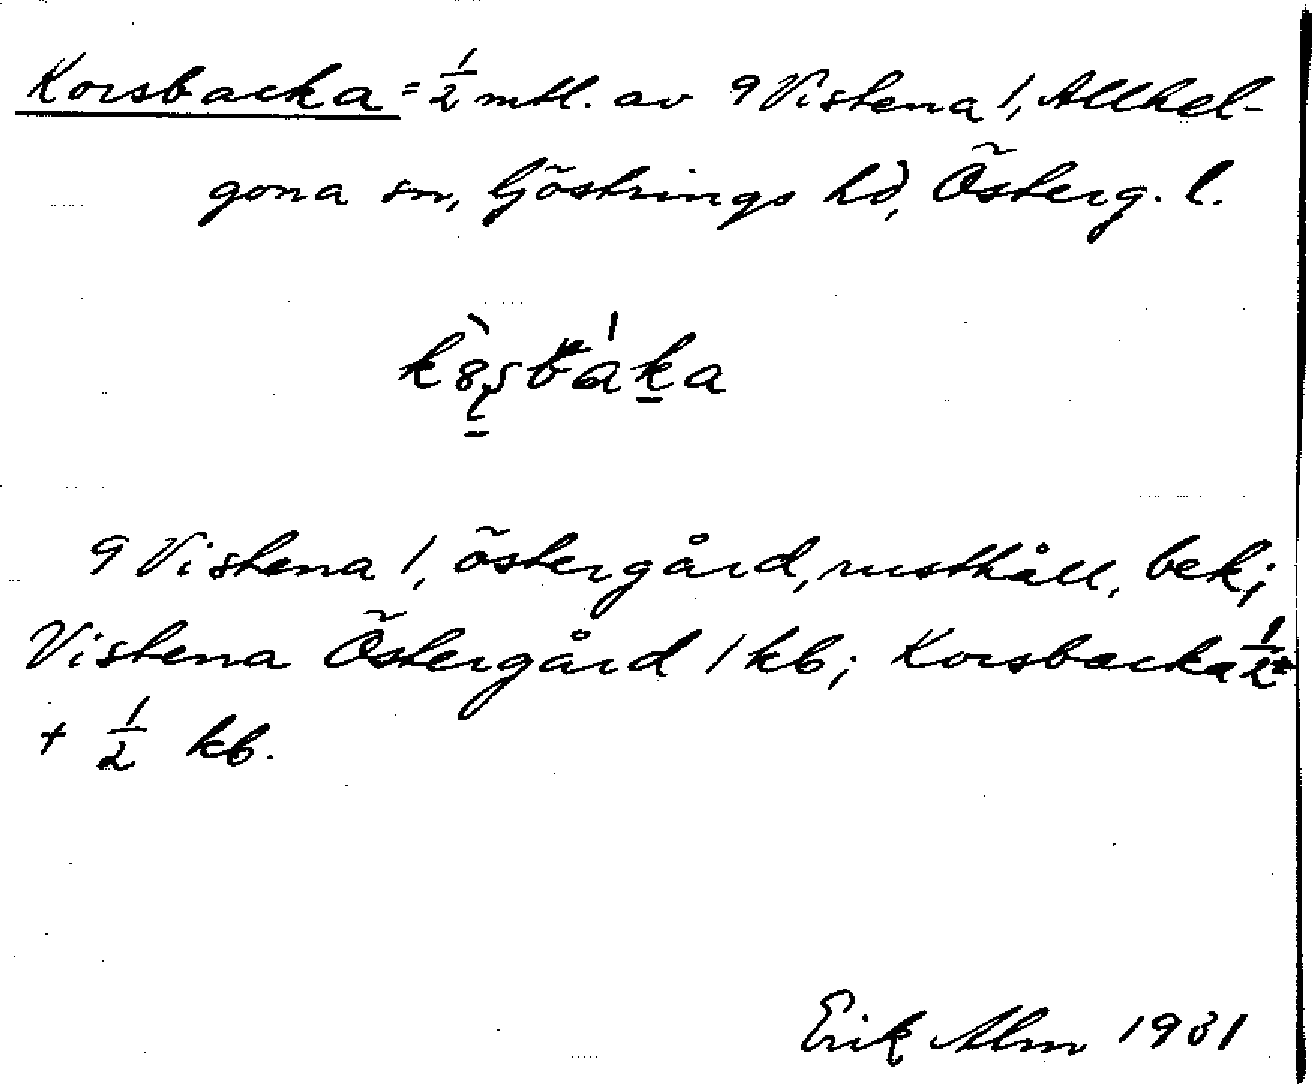 Korsbacka = 1/2 mtl. av 9 Vistena 1, Allhel-
gona sn, Göstrings hd, Österg. l.
9 Vistena 1, östergård, rusthåll, bek;
Vistena Östergård 1 kb; Korsbacka 1/2 +
+ 1/2 kb.
Erik Alm 1931